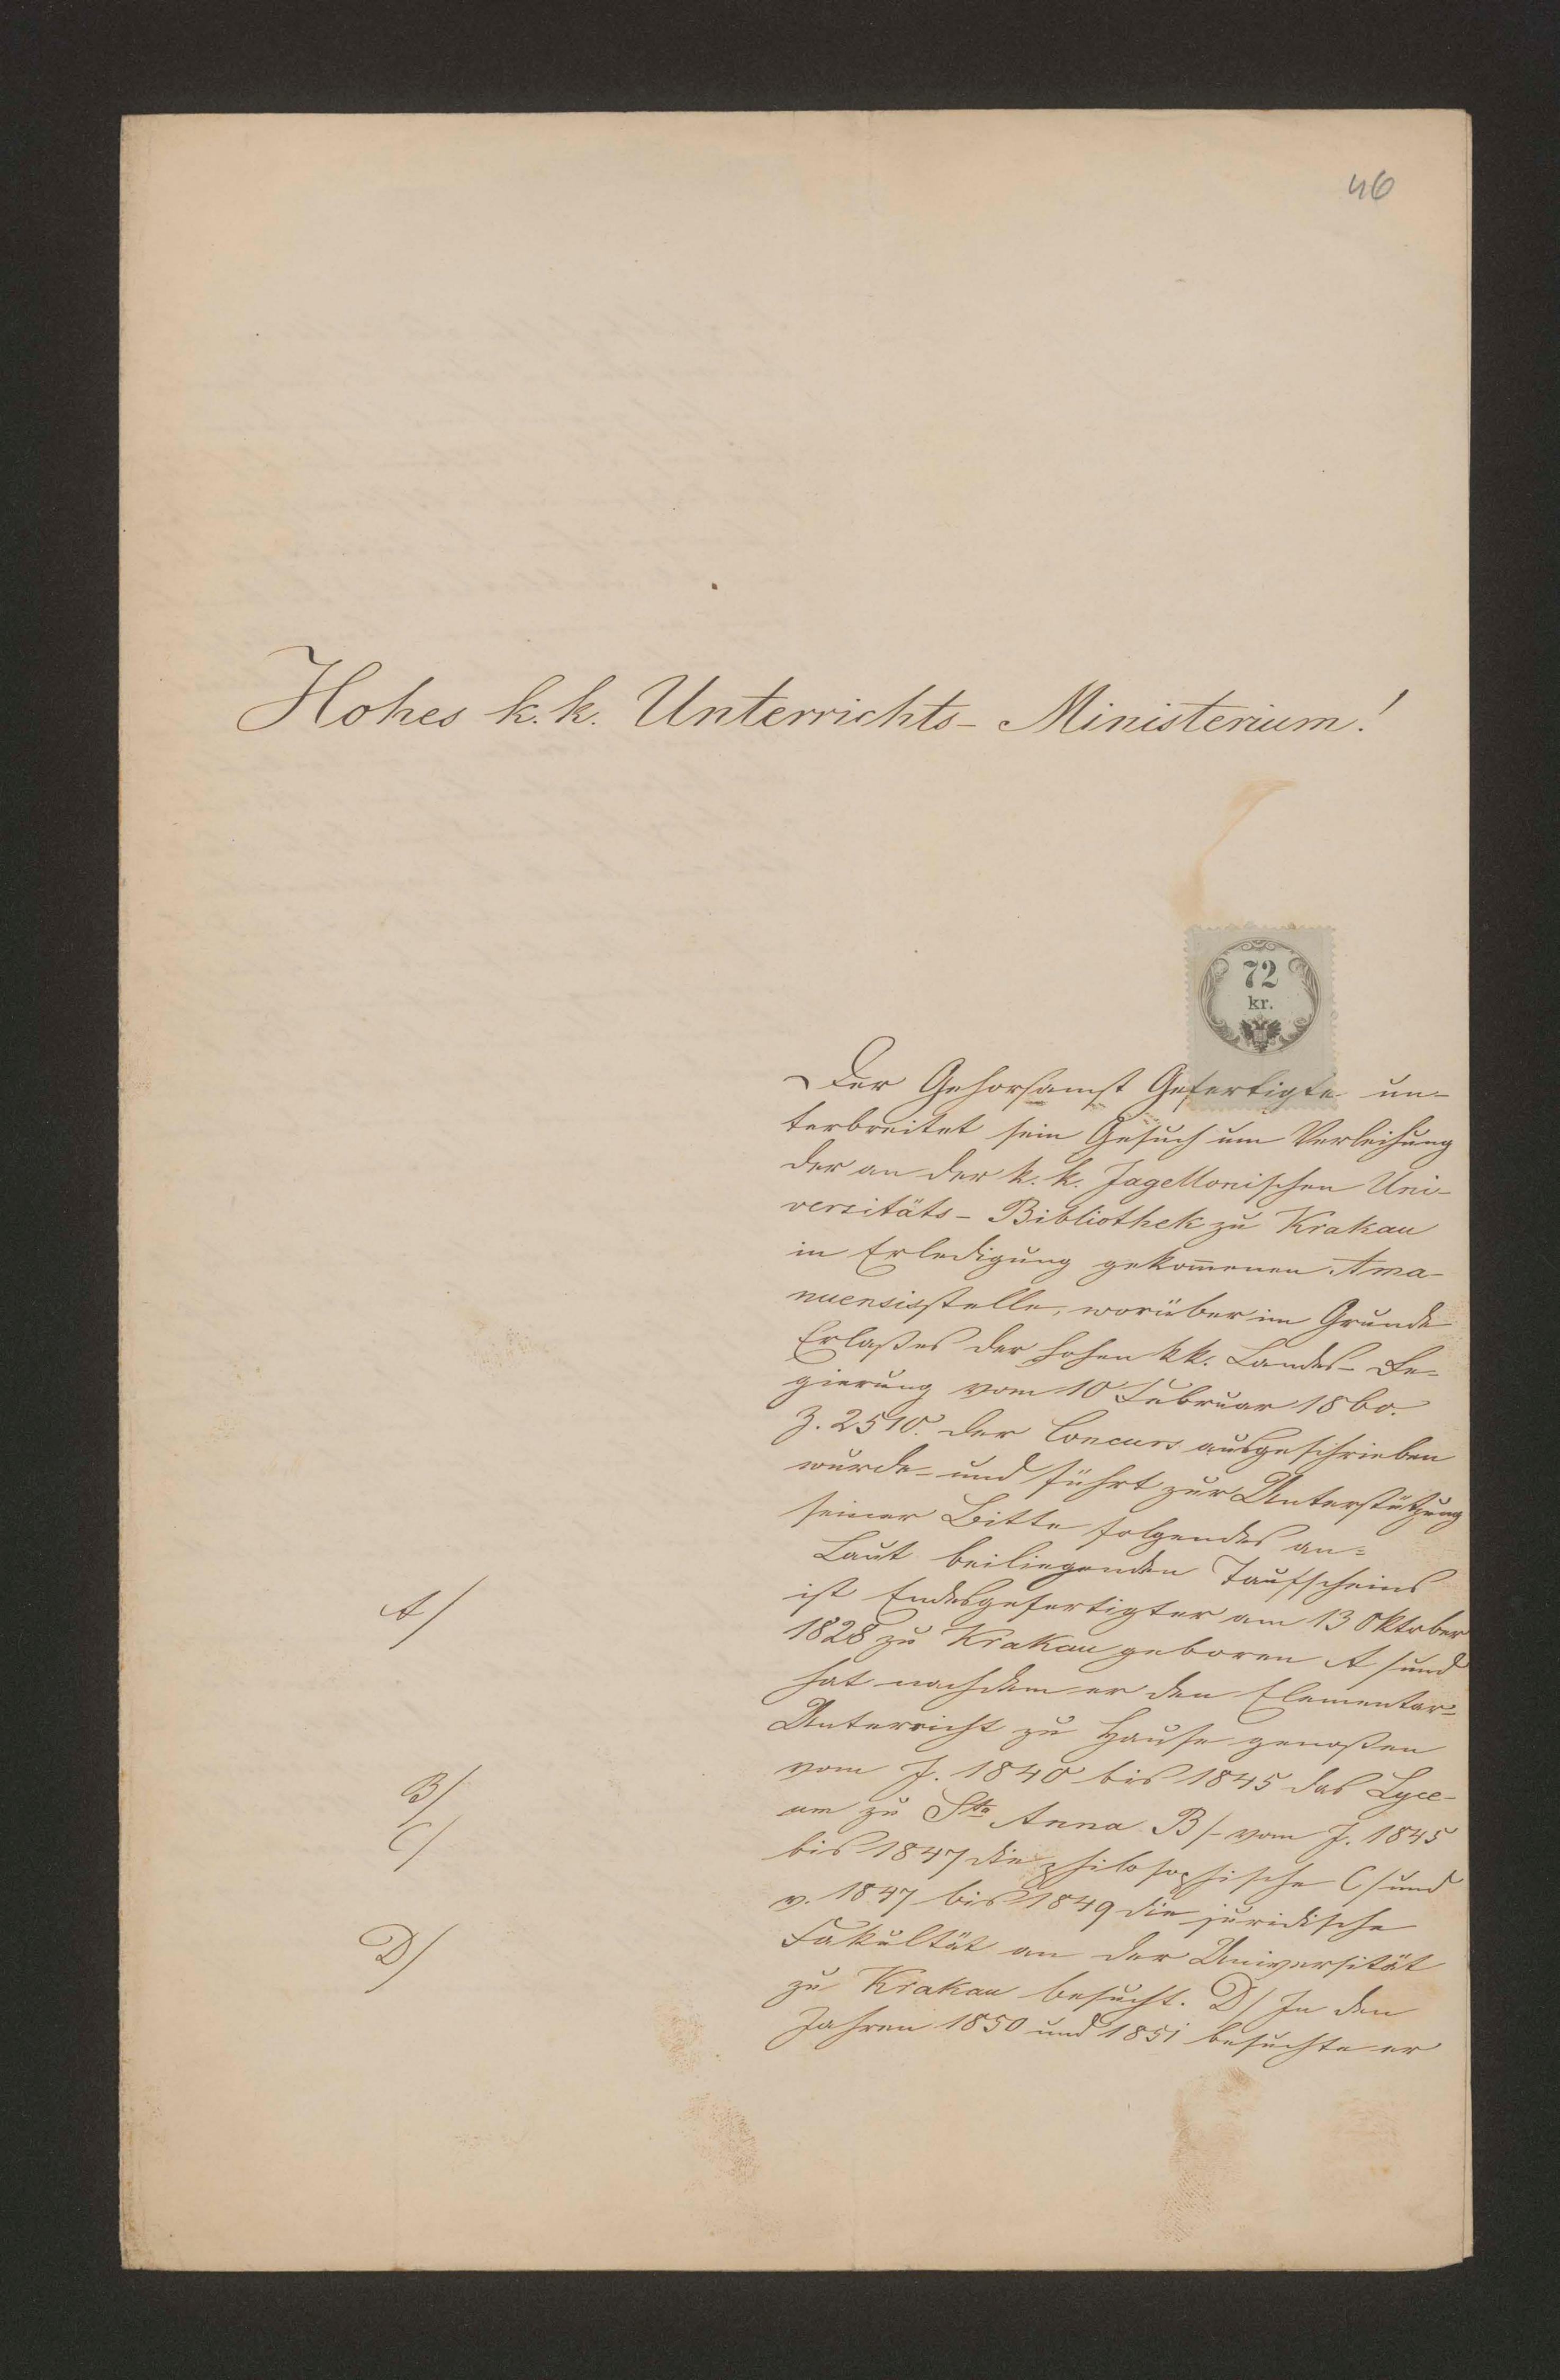 46
Hohes k. k. Unterrichts- Ministerium!
72
kr.
Der Gehorsamst Gefertigte un-
terbreitet sein Gesuch um Verleihung
der an der k. k. Jagellonischen Uni-
versitäts- Bibliothek zu Krakau
in Erledigung gekom̅enen Ama-
nuensisstelle, worüber im Grunde
Erlaßes der hohen kk. Landes- Re-
gierung vom 10 Februar 1860.
Z. 2510. der Concurs ausgeschrieben
wurde- und führt zur Unterstützung
seiner Bitte folgendes an=
Laut beiliegenden Taufscheins
A/
ist Endesgefertigter am 13 Oktober
1828 zu Krakau geboren A/ und
hat nachdem er den Elementar-
Unterricht zu Hause genoßen
B/
vom J. 1840 bis 1845 das Lyce-
C/
um zu Sta Anna B/- vom J. 1845
bis 1847 die philosophische C/ und
v. 1847 bis 1849 die juridische
D/
Fakultät an der Universität
zu Krakau besucht. D/ In den
Jahren 1850 und 1851 besuchte er